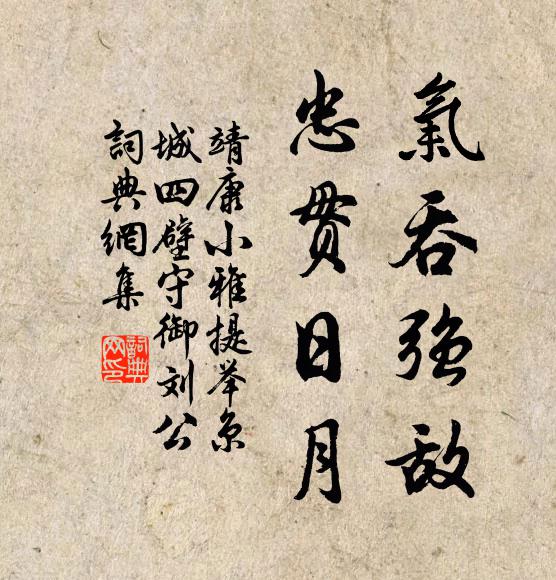 氣吞強敵
忠貫日月
靖康小雅提举京
城四壁守御刘公
詞典網集
詞典網印